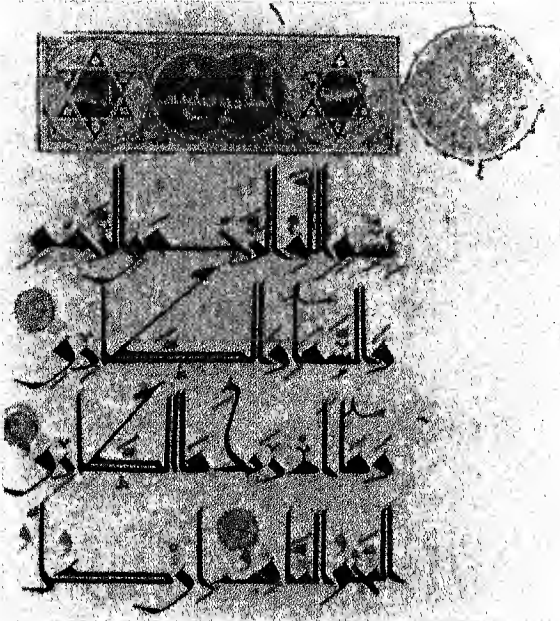 بِسْمِ اللَّهِ الرَّحْمَٰنِ الرَّحِيمِ
وَالسَّمَاءِ وَالطَّارِقِ
وَمَا أَدْرَاكَ مَا الطَّارِقُ
النَّجْمُ الثَّاقِبُ إِنْ كُلُّ